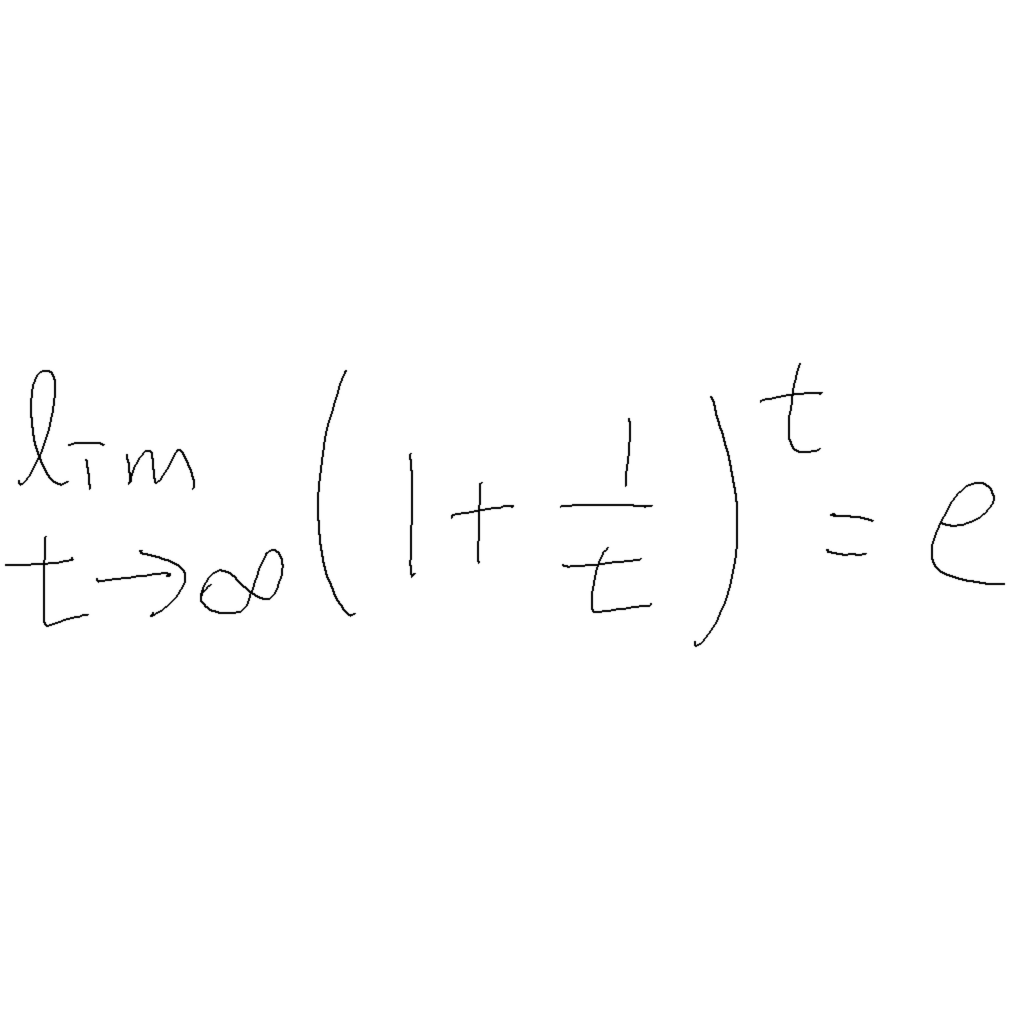 \lim_{t \to \infty} \left( 1 + \frac{1}{t} \right)^t = e